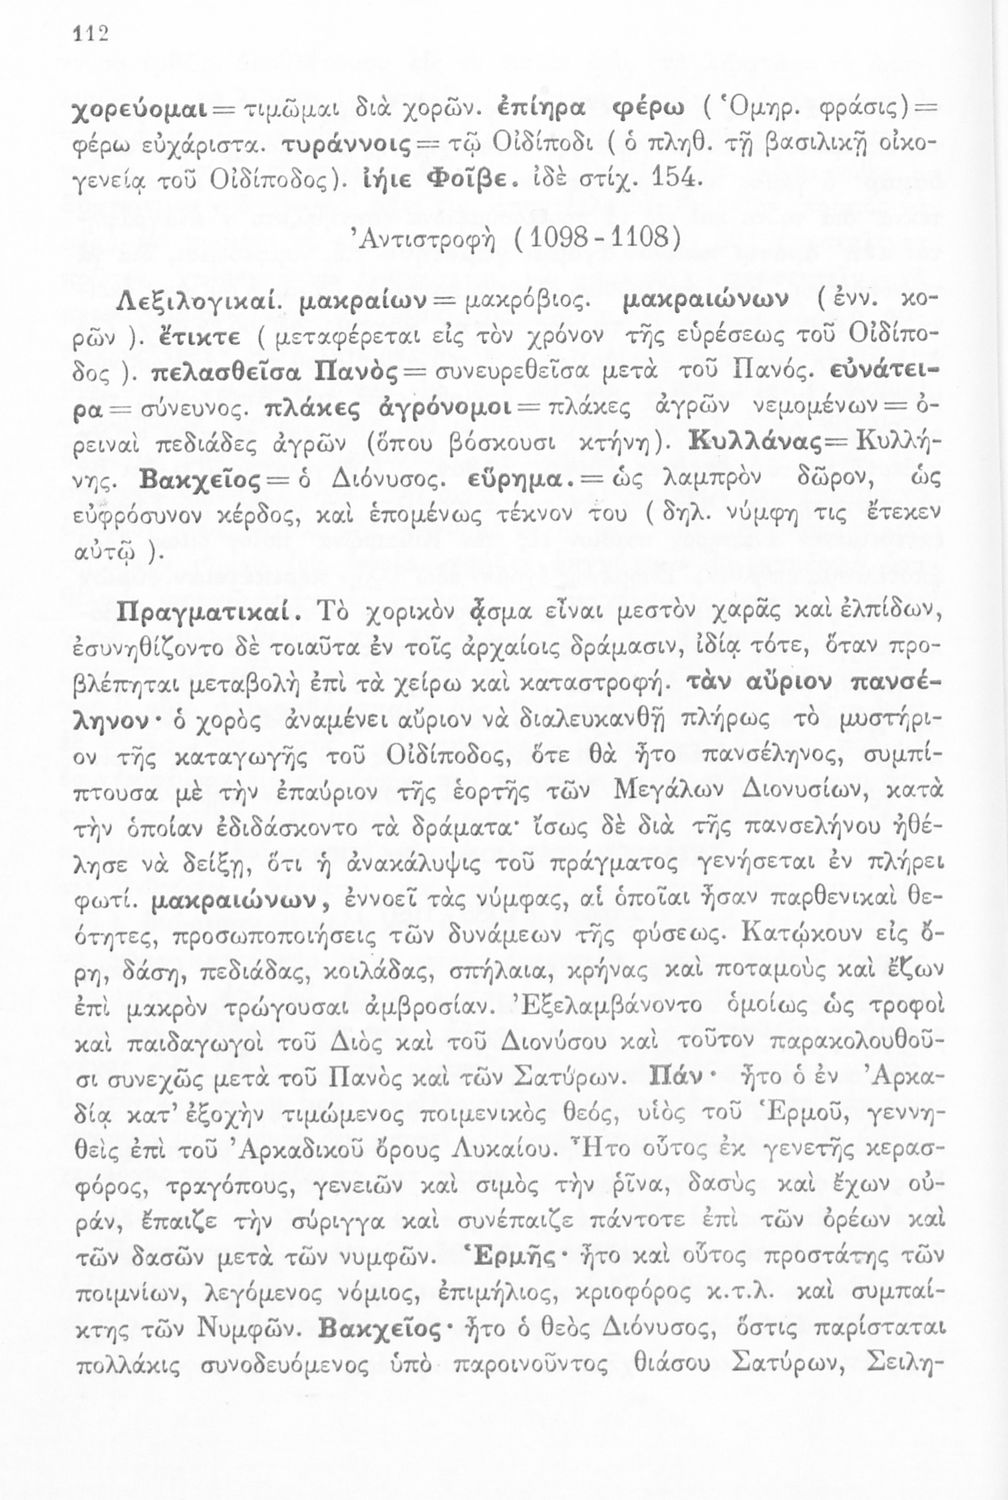 112
χορεύομαι = τιμῶμαι διὰ χορῶν. ἐπίηρα φέρω ( Ὁμηρ. φράσις) =
φέρω εὐχάριστα. τυράννοις = τῷ Οἰδίποδι ( ὁ πληθ. τῇ βασιλικῇ οἰκο-
γενείᾳ τοῦ Οἰδίποδος). ἰήιε Φοῖβε. ἰδὲ στίχ. 154.
Ἀντιστροφὴ ( 1098 - 1108)
Λεξιλογικαί. μακραίων = μακρόβιος. μακραιώνων ( ἐνν. κο-
ρῶν ). ἔτικτε ( μεταφέρεται εἰς τὸν χρόνον τῆς εὑρέσεως τοῦ Οἰδίπο-
δος ). πελασθεῖσα Πανὸς = συνευρεθεῖσα μετὰ τοῦ Πανός. εὐνάτει-
ρα = σύνευνος. πλάκες ἀγρόνομοι = πλάκες ἀγρῶν νεμομένων = ὀ-
ρειναὶ πεδιάδες ἀγρῶν (ὅπου βόσκουσι κτήνη). Κυλλάνας = Κυλλή-
νης. Βακχεῖος = ὁ Διόνυσος. εὕρημα. = ὡς λαμπρὸν δῶρον, ὡς
εὐφρόσυνον κέρδος, καὶ ἑπομένως τέκνον του ( δηλ. νύμφη τις ἔτεκεν
αὐτῷ ).
Πραγματικαί. Τὸ χορικὸν ᾆσμα εἶναι μεστὸν χαρᾶς καὶ ἐλπίδων,
ἐσυνηθίζοντο δὲ τοιαῦτα ἐν τοῖς ἀρχαίοις δράμασιν, ἰδίᾳ τότε, ὅταν προ-
βλέπηται μεταβολὴ ἐπὶ τὰ χείρω καὶ καταστροφή. τὰν αὔριον πανσέ-
ληνον· ὁ χορὸς ἀναμένει αὔριον νὰ διαλευκανθῇ πλήρως τὸ μυστήρι-
ον τῆς καταγωγῆς τοῦ Οἰδίποδος, ὅτε θὰ ἦτο πανσέληνος, συμπί-
πτουσα μὲ τὴν ἐπαύριον τῆς ἑορτῆς τῶν Μεγάλων Διονυσίων, κατὰ
τὴν ὁποίαν ἐδιδάσκοντο τὰ δράματα· ἴσως δὲ διὰ τῆς πανσελήνου ἠθέ-
λησε νὰ δείξῃ, ὅτι ἡ ἀνακάλυψις τοῦ πράγματος γενήσεται ἐν πλήρει
φωτί. μακραιώνων, ἐννοεῖ τὰς νύμφας, αἱ ὁποῖαι ἦσαν παρθενικαὶ θε-
ότητες, προσωποποιήσεις τῶν δυνάμεων τῆς φύσεως. Κατῴκουν εἰς ὄ-
ρη, δάση, πεδιάδας, κοιλάδας, σπήλαια, κρήνας καὶ ποταμοὺς καὶ ἔζων
ἐπὶ μακρὸν τρώγουσαι ἀμβροσίαν. Ἐξελαμβάνοντο ὁμοίως ὡς τροφοὶ
καὶ παιδαγωγοὶ τοῦ Διὸς καὶ τοῦ Διονύσου καὶ τοῦτον παρακολουθοῦ-
σι συνεχῶς μετὰ τοῦ Πανὸς καὶ τῶν Σατύρων. Πάν· ἦτο ὁ ἐν Ἀρκα-
δίᾳ κατ' ἐξοχὴν τιμώμενος ποιμενικὸς θεός, υἱὸς τοῦ Ἑρμοῦ, γεννη-
θεὶς ἐπὶ τοῦ Ἀρκαδικοῦ ὄρους Λυκαίου. Ἦτο οὗτος ἐκ γενετῆς κερασ-
φόρος, τραγόπους, γενειῶν καὶ σιμὸς τὴν ῥῖνα, δασὺς καὶ ἔχων οὐ-
ράν, ἔπαιζε τὴν σύριγγα καὶ συνέπαιζε πάντοτε ἐπὶ τῶν ὀρέων καὶ
τῶν δασῶν μετὰ τῶν νυμφῶν. Ἑρμῆς· ἦτο καὶ οὗτος προστάτης τῶν
ποιμνίων, λεγόμενος νόμιος, ἐπιμήλιος, κριοφόρος κ.τ.λ. καὶ συμπαί-
κτης τῶν Νυμφῶν. Βακχεῖος· ἦτο ὁ θεὸς Διόνυσος, ὅστις παρίσταται
πολλάκις συνοδευόμενος ὑπὸ παροινοῦντος θιάσου Σατύρων, Σειλη-